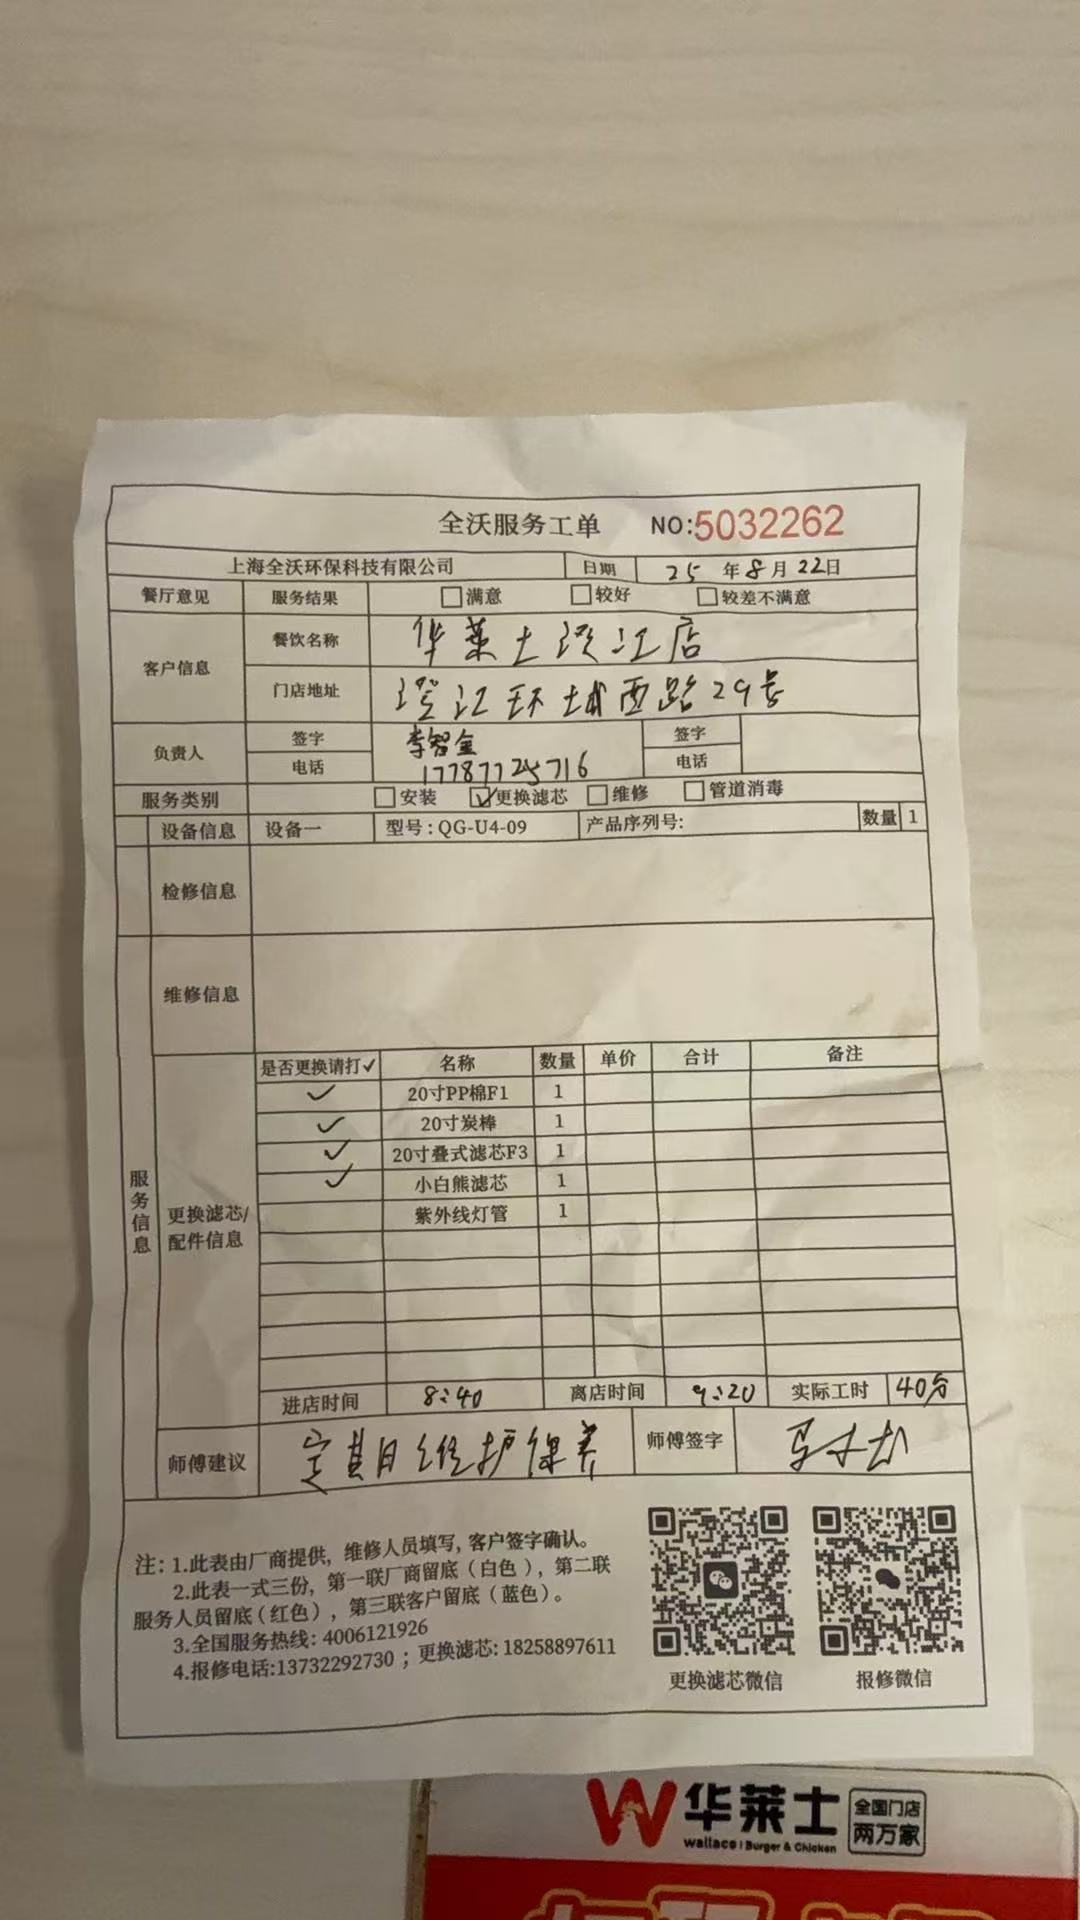 全沃服务工单 NO:5032262
上海全沃环保科技有限公司 日期 25年8月22日
餐厅意见 服务结果 满意 较好 较差不满意
客户信息 餐饮名称 华莱士澄江店
门店地址 澄江环城西路29号
负责人 签字 李智金 签字
电话 17787725716 电话
服务类别 安装 ✓更换滤芯 维修 管道消毒
设备信息 设备一 型号:QG-U4-09 产品序列号: 数量 1
检修信息
维修信息
服务信息
更换滤芯/配件信息
是否更换请打✓ 名称 数量 单价 合计 备注
✓ 20寸PP棉F1 1
✓ 20寸炭棒 1
✓ 20寸叠式滤芯F3 1
✓ 小白熊滤芯 1
紫外线灯管 1
进店时间 8:40 离店时间 9:20 实际工时 40分
师傅建议 定期日维护保养 师傅签字
注: 1.此表由厂商提供, 维修人员填写, 客户签字确认。
2.此表一式三份, 第一联厂商留底(白色), 第二联
服务人员留底(红色), 第三联客户留底(蓝色)。
3.全国服务热线: 4006121926
4.报修电话:13732292730; 更换滤芯: 18258897611
更换滤芯微信 报修微信
华莱士 全国门店
两万家
wallace | Burger & Chicken